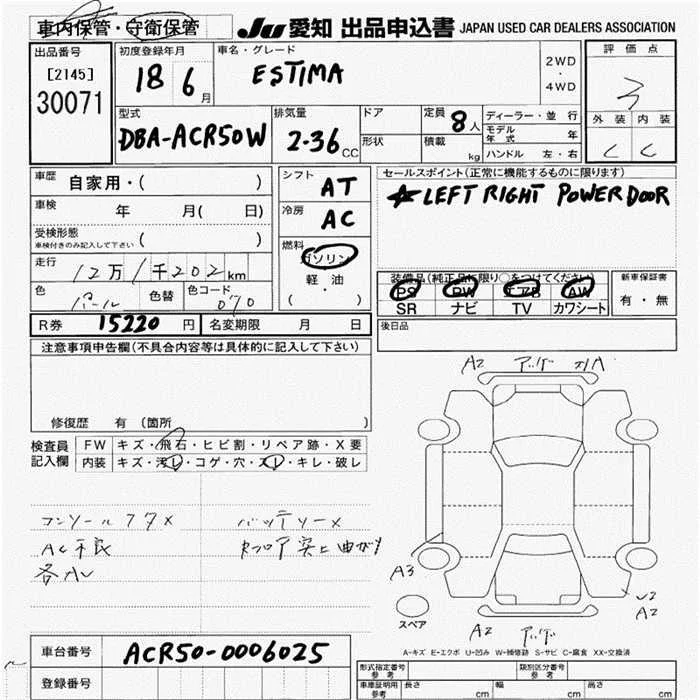 車内保管・守衛保管 JU 愛知 出品申込書 JAPAN USED CAR DEALERS ASSOCIATION
出品番号 初度登録年月 車名・グレード 2WD ・ 4WD 評価点
[2145]
30071 18 6月 ESTIMA 3
型式 排気量 ドア 定員 8人 ディーラー・並行 外装 内装
DBA-ACR50W 2-36 CC 形状 積載 kg モデル年式 年 C C
ハンドル 左・右
車歴 自家用・( ) シフト AT セールスポイント(正常に機能するものに限ります)
車検 年 月( 日) 冷房 AC ☆LEFT RIGHT POWER DOOR
受検形態 ( )
車検付きのみ記入して下さい
燃料 ガソリン
走行 12万1千202km 軽油
装備品(純正品に限り○をつけてください) 新車保証書
色 パール 色替 色コード 070 ( ・ ) PS PW エアB AW 有・無
SR ナビ TV カワシート
R券 15220 円 名変期限 月 日 後日品
注意事項申告欄(不具合内容等は具体的に記入して下さい)
A2
修復歴 有 (箇所 )
検査員記入欄 FW キズ・飛石・ヒビ割・リペア跡・X要
内装 キズ・汚レ・コゲ・穴・スレ・キレ・破レ
コンソールフタ× バッテリー×
AC不良
各AU
A3
A2
スペア
A2
A-キズ E-エクボ U-凹み W-補修跡 S-サビ C-腐食 XX-交換済
車台番号 ACR50-0006025
登録番号
形式指定番号 参考 類別区分番号 参考
車庫証明用 参考 長さ cm 幅 cm 高さ cm